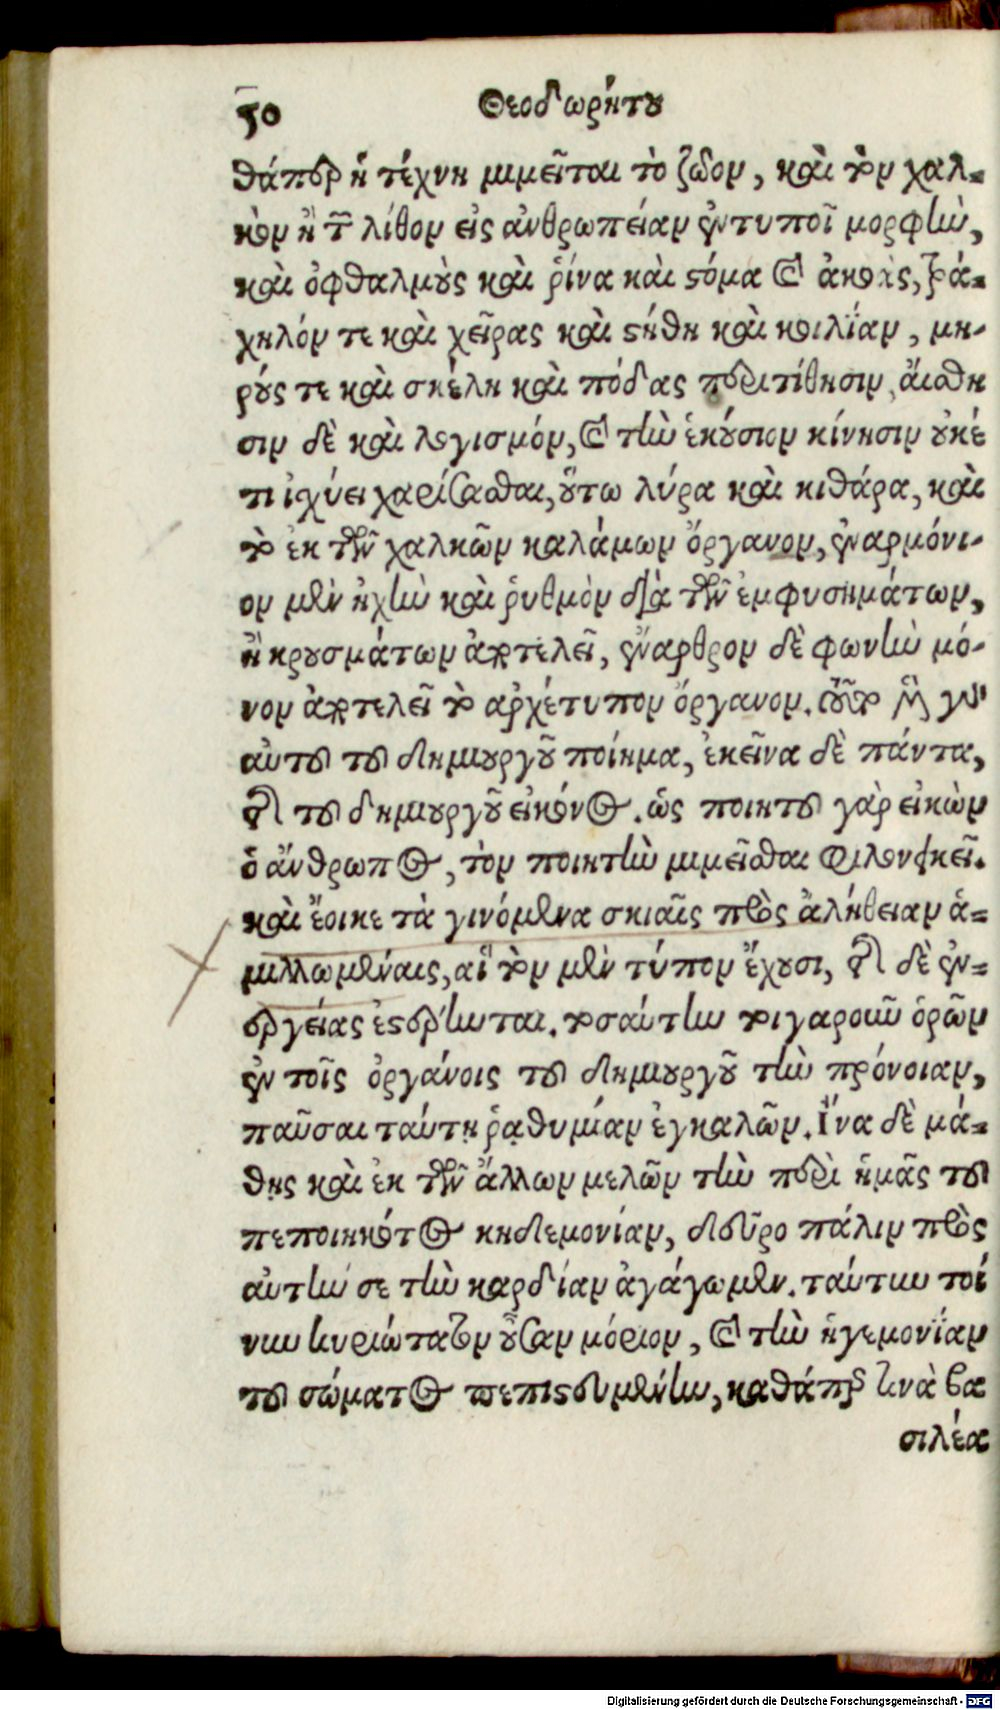 50 Θεοδωρήτου
θάπερ ἡ τέχνη μιμεῖται τὸ ζῶον, καὶ τὸν χαλ-
κὸν ἢ τὸν λίθον εἰς ἀνθρωπείαν ἐντυποῖ μορφὴν,
καὶ ὀφθαλμοὺς καὶ ῥίνα καὶ στόμα καὶ ἀκοὰς, τρά-
χηλόν τε καὶ χεῖρας καὶ στήθη καὶ κοιλίαν, μη-
ρούς τε καὶ σκέλη καὶ πόδας περιτίθησιν, αἴσθη
σιν δὲ καὶ λογισμόν, καὶ τὴν ἑκούσιον κίνησιν οὐκέ
τι ἰσχύει χαρίσασθαι, οὕτω λύρα καὶ κιθάρα, καὶ
τὸ ἐκ τῶν χαλκῶν καλάμων ὄργανον, ἐναρμόνι-
ον μὲν ἠχὴν καὶ ῥυθμὸν διὰ τῶν ἐμφυσημάτων,
ἢ κρουσμάτων ἀποτελεῖ, ἔναρθρον δὲ φωνὴν μό-
νον ἀποτελεῖ τὸ ἀρχέτυπον ὄργανον. τοῦτο μὲν γὰρ
αὐτοῦ τοῦ δημιουργοῦ ποίημα, ἐκεῖνα δὲ πάντα,
τῆς τοῦ δημιουργοῦ εἰκόνος. ὡς ποιητοῦ γὰρ εἰκὼν
ὁ ἄνθρωπος, τὸν ποιητὴν μιμεῖσθαι φιλονεικεῖ.
καὶ ἔοικε τὰ γινόμενα σκιαῖς πρὸς ἀλήθειαν ἁ-
μιλλωμέναις, αἳ τὸν μὲν τύπον ἔχουσι, τῆς δὲ ἐν-
εργείας ἐστέρηνται. τοσαύτην τοιγαροῦν ὁρῶν
ἐν τοῖς ὀργάνοις τοῦ δημιουργοῦ τὴν πρόνοιαν,
παῦσαι ταύτῃ ῥᾳθυμίαν ἐγκαλῶν. Ἵνα δὲ μά-
θῃς καὶ ἐκ τῶν ἄλλων μελῶν τὴν περὶ ἡμᾶς τοῦ
πεποιηκότος κηδεμονίαν, δεῦρο πάλιν πρὸς
αὐτήν σε τὴν καρδίαν ἀγάγωμεν. ταύτην τοί
νυν κυριώτατον οὖσαν μόριον, καὶ τὴν ἡγεμονίαν
τοῦ σώματος πεπιστευμένην, καθάπερ τινὰ βα
σιλέα
Digitalisierung gefördert durch die Deutsche Forschungsgemeinschaft - DFG